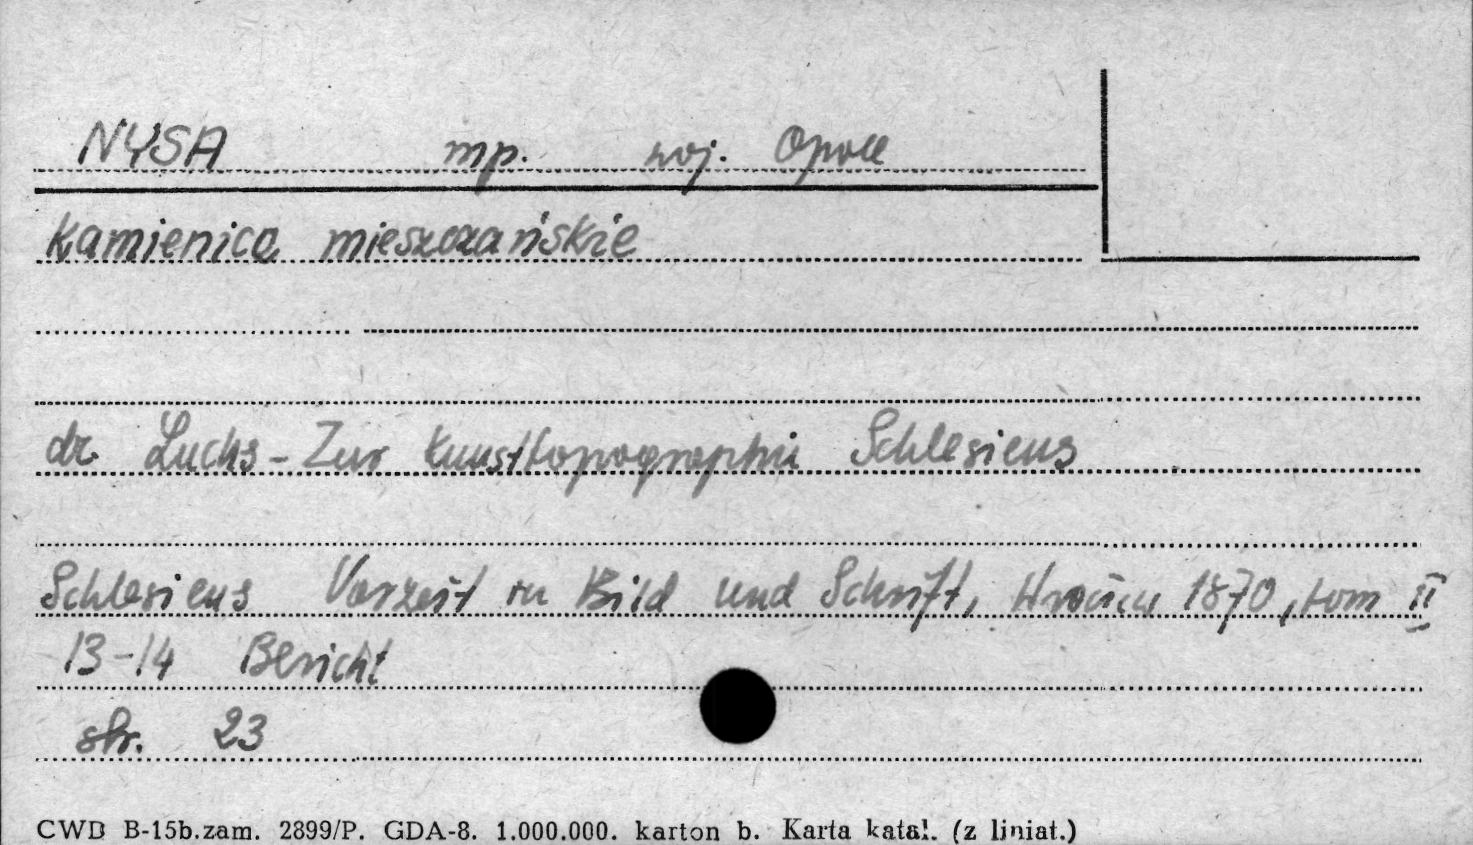 NYSA mp. woj. Opole
Kamienice mieszczańskie
dr. Luchs - Zur Kunsttopographie Schlesiens
Schlesiens Vorzeit in Bild und Schrift, Wrocław 1870, tom II
13-14 Bericht
str. 23
CWD B-15b.zam. 2899/P. GDA-8. 1.000.000. karton b. Karta katal. (z liniat.)